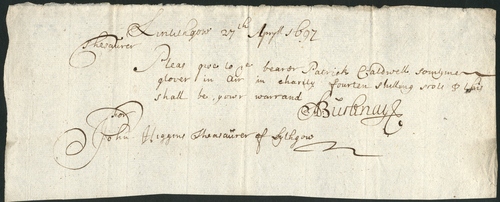 Linlithgow 27th Apryll 1697
Thesaurer
Pleas give to ye bearer Patrick Caldwell somtyme
glover in Air in charity fourten shilling scots & this
shall be your warrand
For
John Higgins Thesaurer of Lythgow